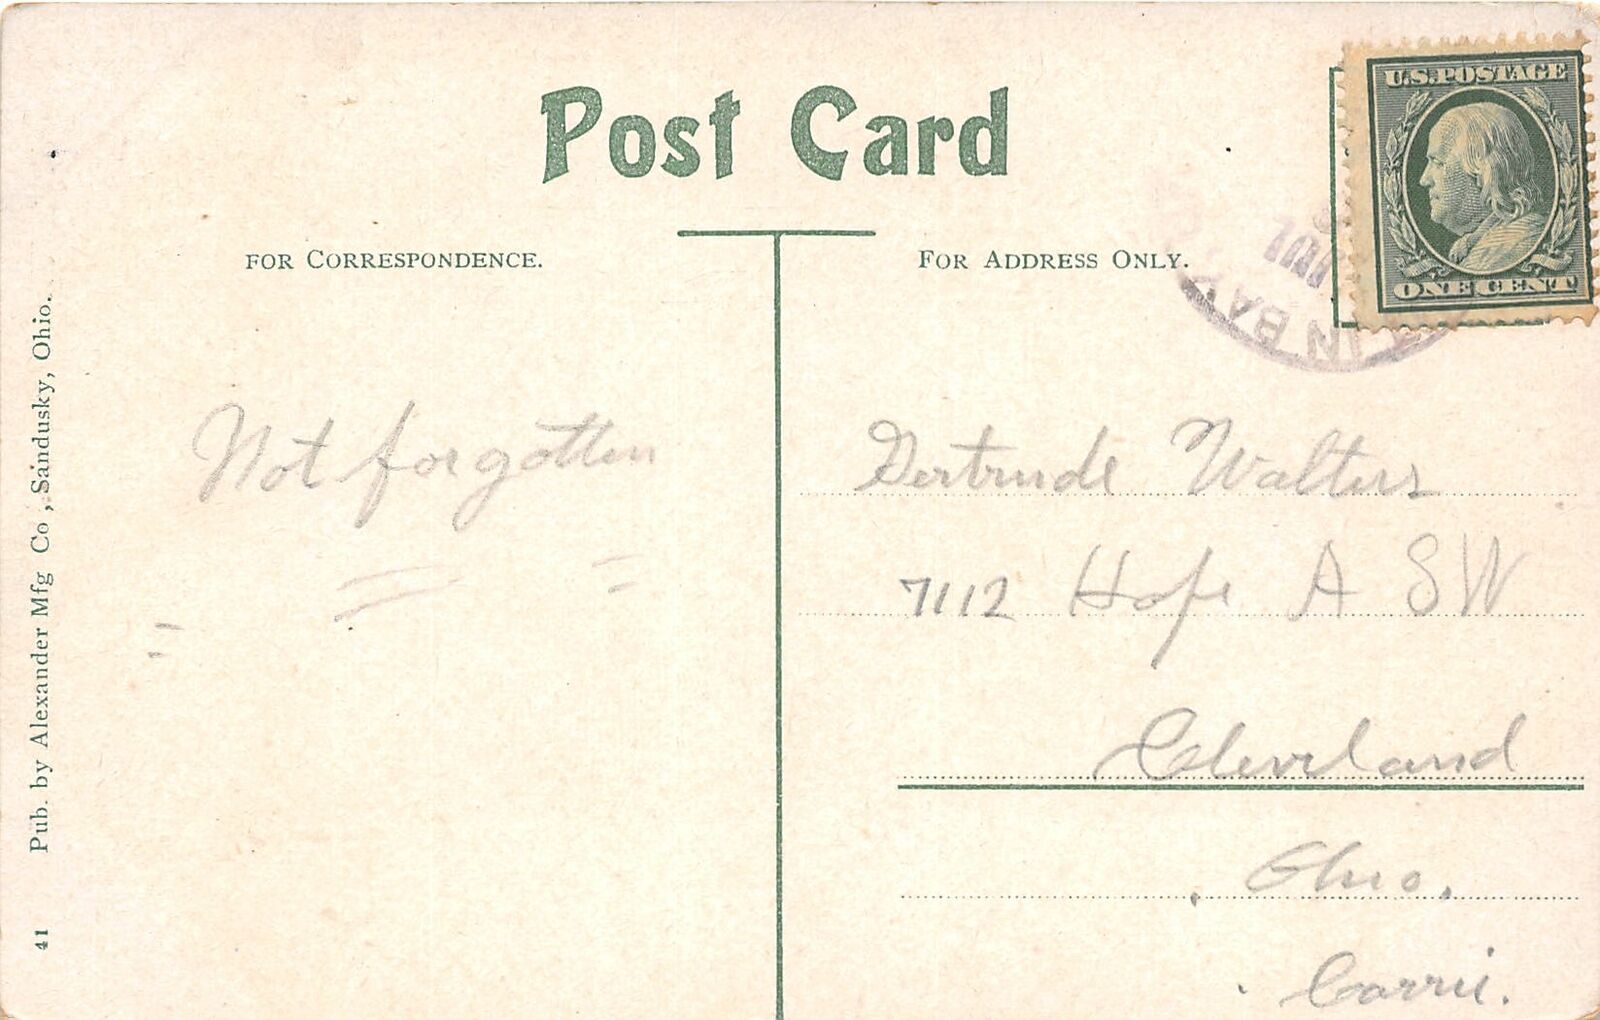 Post Card
FOR CORRESPONDENCE.
FOR ADDRESS ONLY.
U.S. POSTAGE
ONE CENT
IN BAY
Not forgotten
Gertrude Walters
7112 Hope A SW
Cleveland
Ohio.
Carrie.
Pub. by Alexander Mfg Co., Sandusky, Ohio.
41